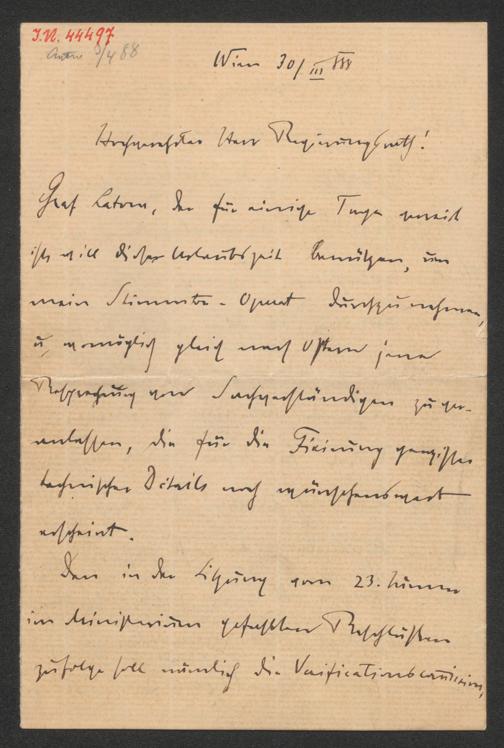 I.N. 44497
3/4 88
Wien 30/III 888
Hochverehrter Herr Regierungsrath!
Graf Latour, der für einige Tage verreist
ist, will diese Urlaubszeit benützen, um
mein Stimmton-Operat durchzunehmen,
u. womöglich gleich nach Ostern jene
Besprechung von Sachverständigen zu ver-
anlassen, die für die Fixirung gewisser
technischer Details noch wünschenswert
erscheint.
Den in der Sitzung vom 23.
im Ministerium gefaßten Beschlüssen
zufolge soll nämlich die Verificationscommission,